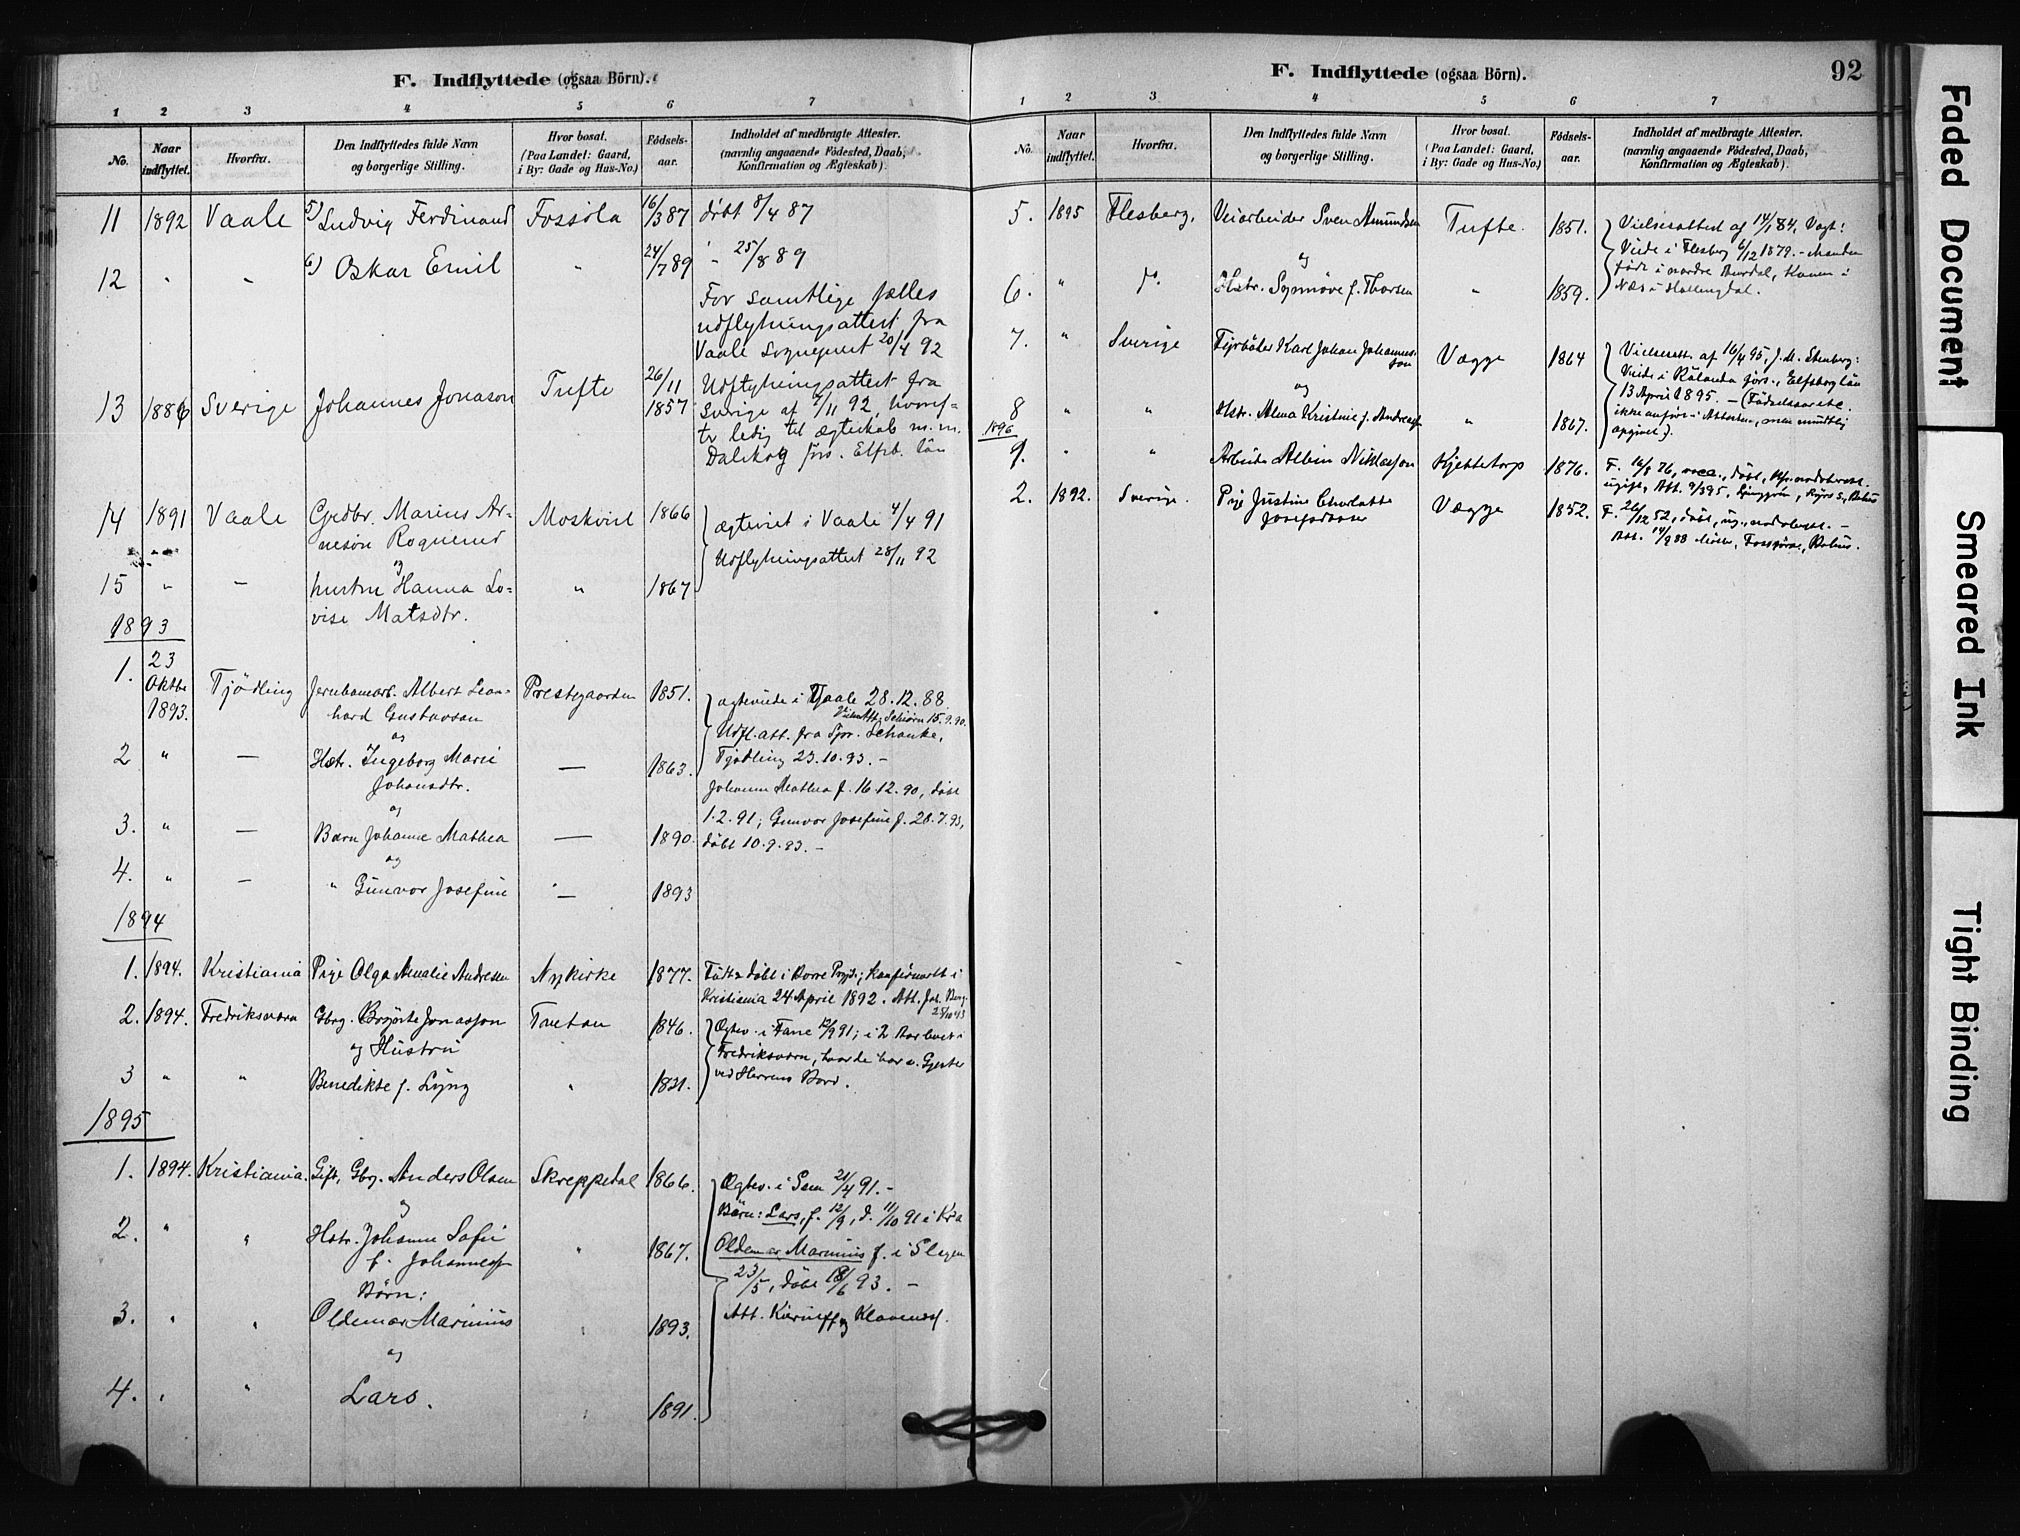 F. Indflyttede (ogsaa Börn).
1 2 3 4 5 6 7
No. Naar indflyttet. Hvorfra. Den Indflyttedes fulde Navn og borgerlige Stilling. Hvor bosat. (Paa Landet: Gaard, i By: Gade og Hus-No.) Födsels-aar. Indholdet af medbragte Attester. (navnlig angaaende Födested, Daab, Konfirmation og Ægteskab).
11 1892 Vaale 5) Ludvig Ferdinand Fossola 16/3 87 döbt 8/4 87
12 " " 6) Oskar Emil " 24/7 89 " 25/8 89
For samtlige fælles
udflytningsattest fra
Vaale Sogneprest 20/4 92
13 1886 Sverige Johannes Jonason Tufte 26/11 1857 Udflytningsattest fra
Sverige af 7/11 92, hvoref-
ter ledig til ægteskab m.m.
Dalskog förs. Elfsb. län
14 1891 Vaale Grdbr. Marius Ar-
nesön Roqnerud Moskvist 1866 ægteviet i Vaale 4/4 91
og Udflytningsattest 28/11 92
15 " — hustru Hanna Lo-
vise Matsdtr. " 1867
1893
1. 23 Oktbr 1893. Tjödling Jernbanearb. Albert Leon-
hard Gustavson Prestegaarden 1851. ægteviede i Vaale 28.12.88
og Udfl.att. fra Spr. Schanke,
2 " — Hstr. Ingeborg Marie
Johansdtr. — 1863. Tjödling 23.10.93. —
og Johanne Mathea f. 16.12.90, döbt
3. " — Barn Johanne Mathea — 1890. 1.2.91; Gunvor Josefine f. 28.7.93,
og döbt 10.9.93. —
4. " — " Gunvor Josefine — 1893
1894
1. 1894. Kristiania Pige Olga Amalie Andresen Nykirke 1877. Födt & döbt i Borre Prgjd.; konfirmert i
Kristiania 24 April 1892. Att. Joh.
2. 1894. Fredriksværn Gbrg. Jonasson
og Hustru 1846. Ægtev. i Fane 12/9 91; i 2 Aar boet i
Fredriksværn, hvor de har v. Gjester
3 " " Benedikte f. Lyng " 1821. ved Herrens Bord.
1895
1. 1894. Kristiania. Gift, Gbrg. Anders Olsen Skreppedal 1866. Ægtev. i Sem 21/4 91. —
og Börn: Lars, f. 12/9, d. 11/10 91 i Kra
2. " " Hstr. Johanne Sofie
f. Johannes " 1867. Oldemar Marinius f. i Slagen
Börn: 23/5, döbt 18/6 93. —
3. " " Oldemar Marinius " 1893. Att. og Klaveness.
og
4. " " Lars. 1891.
F. Indflyttede (ogsaa Börn). 92
1 2 3 4 5 6 7
No. Naar indflyttet. Hvorfra. Den Indflyttedes fulde Navn og borgerlige Stilling. Hvor bosat. (Paa Landet: Gaard, i By: Gade og Hus-No.) Födsels-aar. Indholdet af medbragte Attester. (navnlig angaaende Födested, Daab, Konfirmation og Ægteskab).
5. 1895 Flesberg, Veiarbeider Sven Amundsen Tufte. 1851. Vielsesattest af 14/1 84, Vogt:
og Viede i Flesberg 6/12 1879. — Manden
6. " Do. Hstr. Synnöve f. Thorsen " 1859. födt i nordre Aurdal, Konen i
Næs i Hallingdal.
7. " Sverige Fyrböder Karl Johan Johannes-
son Vægge 1864 Vielsesatt. af 16/4 95, J. M. Stenberg:
og Viede i Rölanda förs., Elfsborg län
8 " " Hstr. Alma Kristine f. Andreas " 1867. 13 April 1895. — (Födselsaarene
ikke anfört i Attesten, men mundtlig
opgivet).
1896
9. " " Arbeider Albin Niklasson Kjettetorp 1876. F. 16/8 76, döbt,
ugift, Att. 9/3 95, Bohus
2. 1892. Sverige. Pige Justine Charlotte
Josefsdatter Vægge 1852. F. 26/12 52, döbt, ug., —
Att. 14/9 88 Bohus.
Faded Document
Smeared Ink
Tight Binding